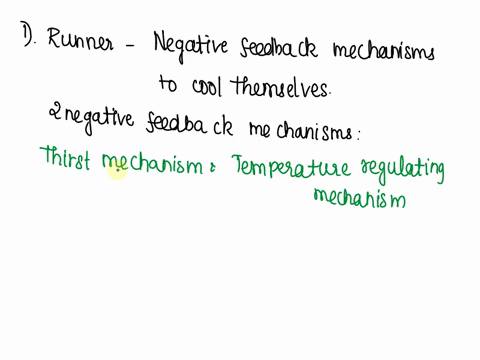 1). Runner - Negative feedback mechanisms
to cool themselves.
2 negative feedback mechanisms:
Thirst mechanism & Temperature regulating
mechanism